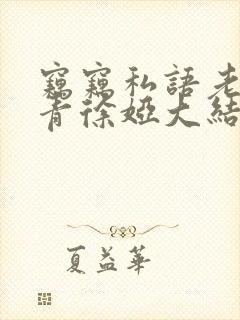 竊竊私語老
青徐婭大結
夏益華